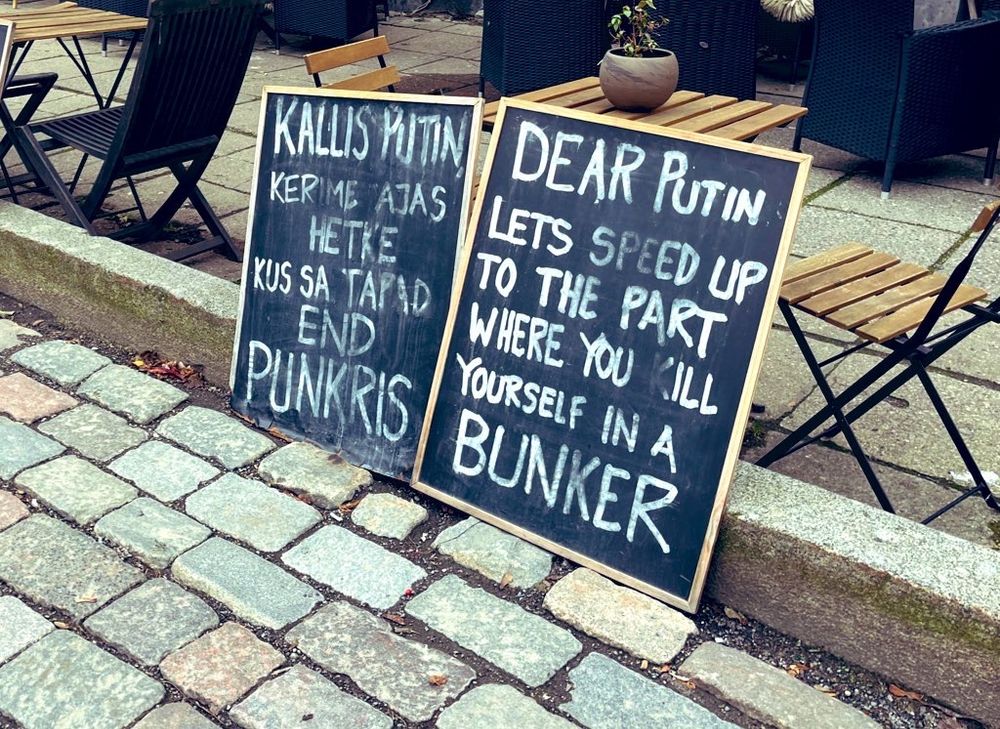 KALLIS PUTIN,
KERIME AJAS
HETKE
KUS SA TAPAD
END
PUNKRIS
DEAR PUTIN
LETS SPEED UP
TO THE PART
WHERE YOU KILL
YOURSELF IN A
BUNKER